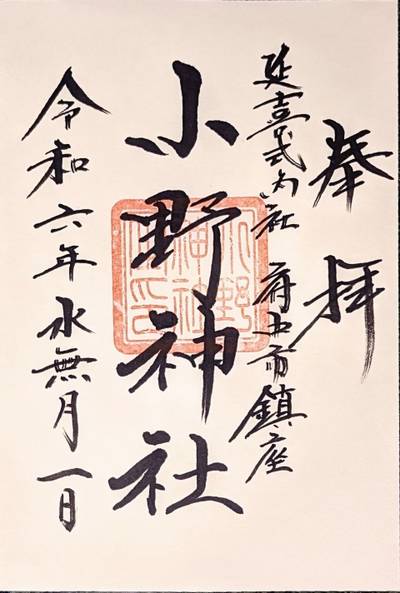 奉拝
延喜式内社 府中市鎮座
小野神社
令和六年水無月一日